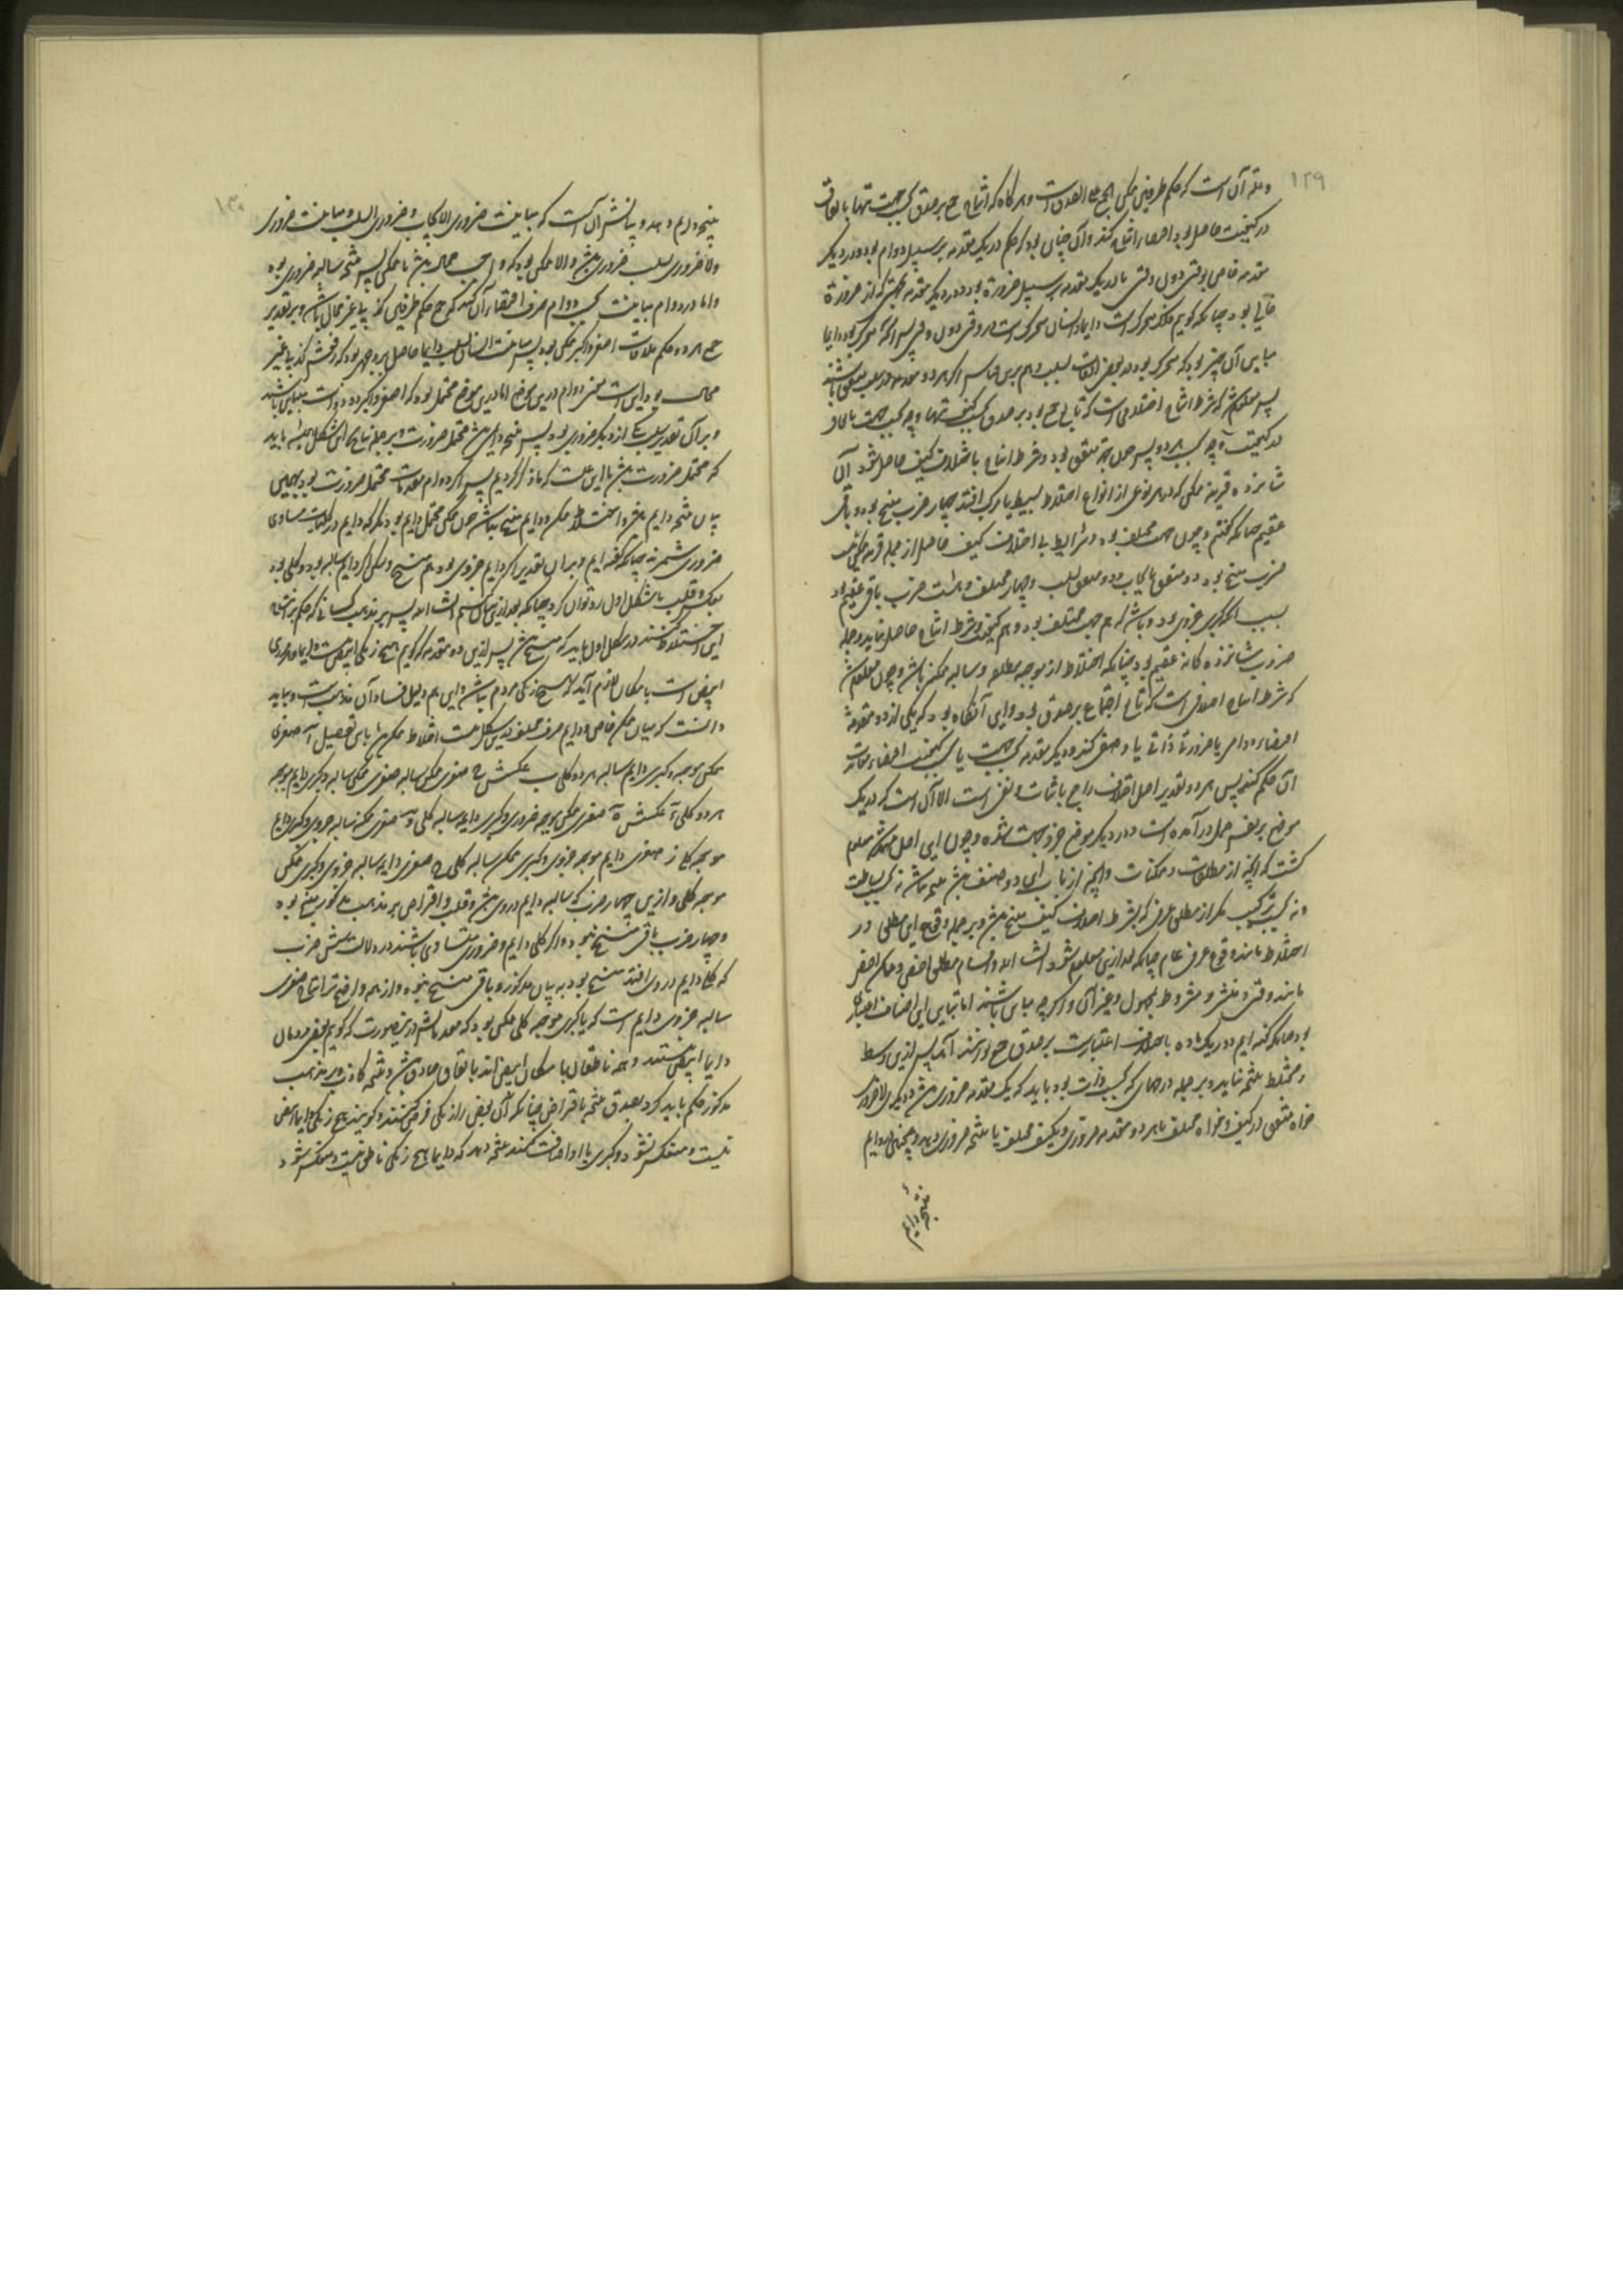 ۱۲۹
و علة آن است که حکم طرفین ممکن الجمع علی الصدق است و هر گاه که امتناع جمع بر صدق بحسب جهت تنها با اتفاق
در کیفیت حاصل بود احضار انتاج کند و آن چنان بود که حکم در یک مقدمه بر سبیل دوام بود و در دیگر
مقدمه خاص بوقتی دون وقتی یا در یک مقدمه بر سبیل ضرورة بود و در دیگر مقدمه بجهتی که از ضرورة
خالی بود چنانکه گویم فلک متحرک است دایما و انسان متحرک است در وقتی دون وقتی پس آنچه متحرک بود دایما
مباین آن چیز بود که متحرک بود در بعضی اوقات بسلب و هم برین قیاس اگر هر دو مقدمه در سلب متفق باشند
پس معلوم شد که شرط انتاج اختلافی است که تابع جمع بود بر صدق بحسب کیفیت تنها و چه بحسب جهت با
کیفیت و چه بحسب هر دو پس چون جهة متفق بود و شرط انتاج باختلاف کیف حاصل شود از آن
شانزده قرینه ممکن که در هر نوعی از انواع اختلاط بسیط یا مرکب افتد چهار ضرب منتج بود و باقی
عقیم چنانکه گفتیم و چون جهت مختلف بود و شرایط بی اختلاف کیف حاصل از جمله قرینه ممکن هشت
ضرب منتج بود دو متفق بایجاب و دو متفق بسلب و چهار مختلف و هشت ضرب باقی عقیم بود
بسبب آنکه کبری جزوی بود و باشد که هم جهت مختلف بود و هم کیفیت و شرط انتاج حاصل نیاید و جمله
ضروب شانزده گانه عقیم بود چنانکه اختلاط از موجبه مطلقه و سالبه ممکنه باشد و چون معلوم شد
که شرط انتاج اختلافی است که تابع اجتماع بر صدق بود و این آنگاه بود که یکی از دو مقدمه
اقتضاء دوامی یا ضرورتی ذاتی یا وصفی کند و دیگر مقدمه بحسب جهت یا بحسب کیفیت اقتضاء مخالفت
آن حکم کند پس هر دو تقدیر اصل اختلاف راجع باثبات و نفی است الا آن است که در یک
موضع بر نفس حمل در آمده است و در دیگر موضع جزو جهت شده و چون این اصل ممهد شد معلوم
گشت که آنچه از مطلقات و ممکنات و آنچه از باب این دو صنف باشد منتج نباشد نه بحسب بساطت
و نه بحسب ترکیب مگر از مطلق عرفی که بشرط اختلاف کیف منتج باشد و بر جمله وقوع این مطلق در
اختلاط مانند وقوع عرفی عام چنانکه بعد ازین معلوم شود انشاء الله و اقسام مطلق اخص و ممکن اخص
مانند وقتی و منتشر و مشروط بمحمول و غیر آن و اگر چه مباین باشند اما تباین این اصناف اعتباری
بود چنانکه گفته ایم و در یک ماده باختلاف اعتبارات بر صدق جمع توانند آمد پس ازین وسط
و مختلط نتیجه نیاید و بر جمله در جهاتی که بحسب ذات بود باید که یک مقدمه ضروری باشد و دیگری لاضروری
خواه متفق در کیف و خواه مختلف یا هر دو مقدمه ضروری و بکیف مختلف تا نتیجه ضروری دهد و همچنین در دایم
نتیجه دایم
۱۳۰
نتیجه دایم دهد و بیانش آن است که مباینت ضروری الایجاب و ضروری السلب مباینت ضروری
ولا ضروری بسلب ضروری باشد والا ممکن بود که واجب محال باشد یا ممکن پس نتیجه سالبه ضروری بود
و اما در دوام مباینت بحسب دوام صرف اقتضاء آن کند که جمع حکم طرفین کذب غیر محال باشد و بر تقدیر
جمع هر دو حکم ملاقات اصغر و اکبر ممکن بود پس مباینت ایشان بسلب دایما حاصل بر وجهی بود که رفعش کذب غیر
محال بود این است معنی دوام درین موضع اما درین موضع محتمل بود که اصغر و اکبر دو ذات متباین باشند
و بر آن تقدیر سلب یکی از دیگر ضروری بود پس نتیجه دایم باشد محتمل ضرورت و بر جمله نتایج این شکل همیشه باید
که محتمل ضرورت باشد با این علت که یاد کردیم پس اگر دوام مقدمات محتمل ضرورت بود بهمین
بیان نتیجه دایم باشد و اختلاط ممکن و دایم منتج نباشد چون ممکن محتمل دایم بود مگر که دایم در کلیات مساوی
ضروری شمرند چنانکه گفته ایم و بر آن تقدیر اگر دایم جزوی بود هم منتج و ممکن اگر دایم سالبه بود و کلی بود
بعکس و قلب با شکل اول رد توان کرد چنانکه بعد ازین بیان کنیم انشاء الله پس بر مذهب کسانی که حکم بر نتیجه
این اختلاط کنند در شکل اول باید که منتج باشد پس ازین دو مقدمه که گویم هیچ زنگی ابیض نیست دایما و هر مردمی
ابیض است بامکان لازم آید که هیچ زنگی مردم نباشد و این هم دلیل فساد آن مذهب است و بباید
دانست که میان ممکن خاص و دایم صرف مختلف درین شکل هشت اختلاط ممکن باشد باین تفصیل آ صغری
ممکن موجبه و کبری دایم سالبه هر دو کلی ب عکسش ج صغری ممکن سالبه و کبری دایم موجبه
هر دو کلی د عکسش ه صغری ممکن موجبه جزوی و کبری دایم سالبه کلی و صغری ممکنه سالبه جزوی و کبری دایم
موجبه کلی ز صغری دایم موجبه جزوی و کبری ممکن سالبه کلی ح صغری دایم سالبه جزوی و کبری ممکن
موجبه کلی و ازین چهار ضرب که سالبه دایم در وی باشد و قلب و افتراض بر مذهب مذکور منتج بود
و چهار ضرب باقی منتج نبود و اگر کلی دایم و ضروری متساوی باشند در دلالت شش ضرب
که کلی دایم در وی افتد منتج بود به بیان مذکور و باقی منتج نبود و از همه واضح تر انتاج صغری
سالبه جزوی دایم است که با کبری موجبه کلی ممکن بود که مقدماتش درین صورت که گویم بعضی مردمان
دایما ابیض نیستند و همه ناطقان بامکان ابیض اند باتفاق صادق باشد و نتیجه کاذب و بر مذهب
مذکور حکم باید کرد بصدق نتیجه بافتراض چنانکه آن بعضی را زنگی فرض کنند و گویند هیچ زنگی دایما ابیض
نیست و منعکس شود و کبری با او اضافت کنند نتیجه دهد که دایما هیچ زنگی ناطق نیست و منعکس شود